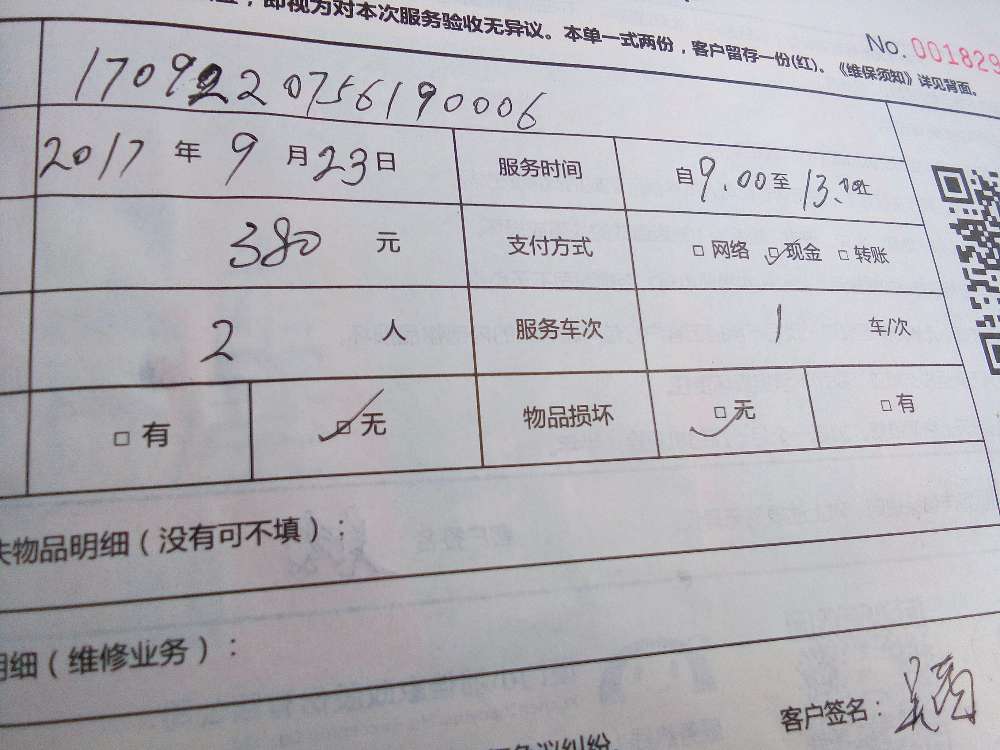 即视为对本次服务验收无异议。本单一式两份，客户留存一份(红)。《维保须知》详见背面。
No. 001829
170922 0756190006
2017 年 9 月 23 日 服务时间 自 9.00 至 13.00 止
380 元 支付方式 □ 网络 ☑ 现金 □ 转账
2 人 服务车次 1 车/次
□ 有 ☑ 无 物品损坏 ☑ 无 □ 有
失物品明细（没有可不填）：
明细（维修业务）：
客户签名：
议纠纷